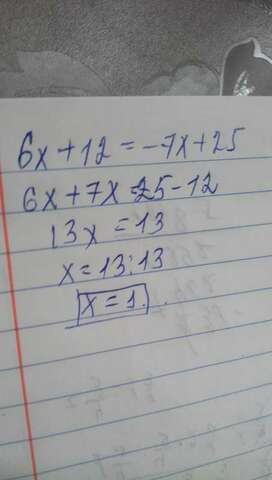 6x+12=-7x+25
6x+7x=25-12
13x=13
x=13:13
x=1.